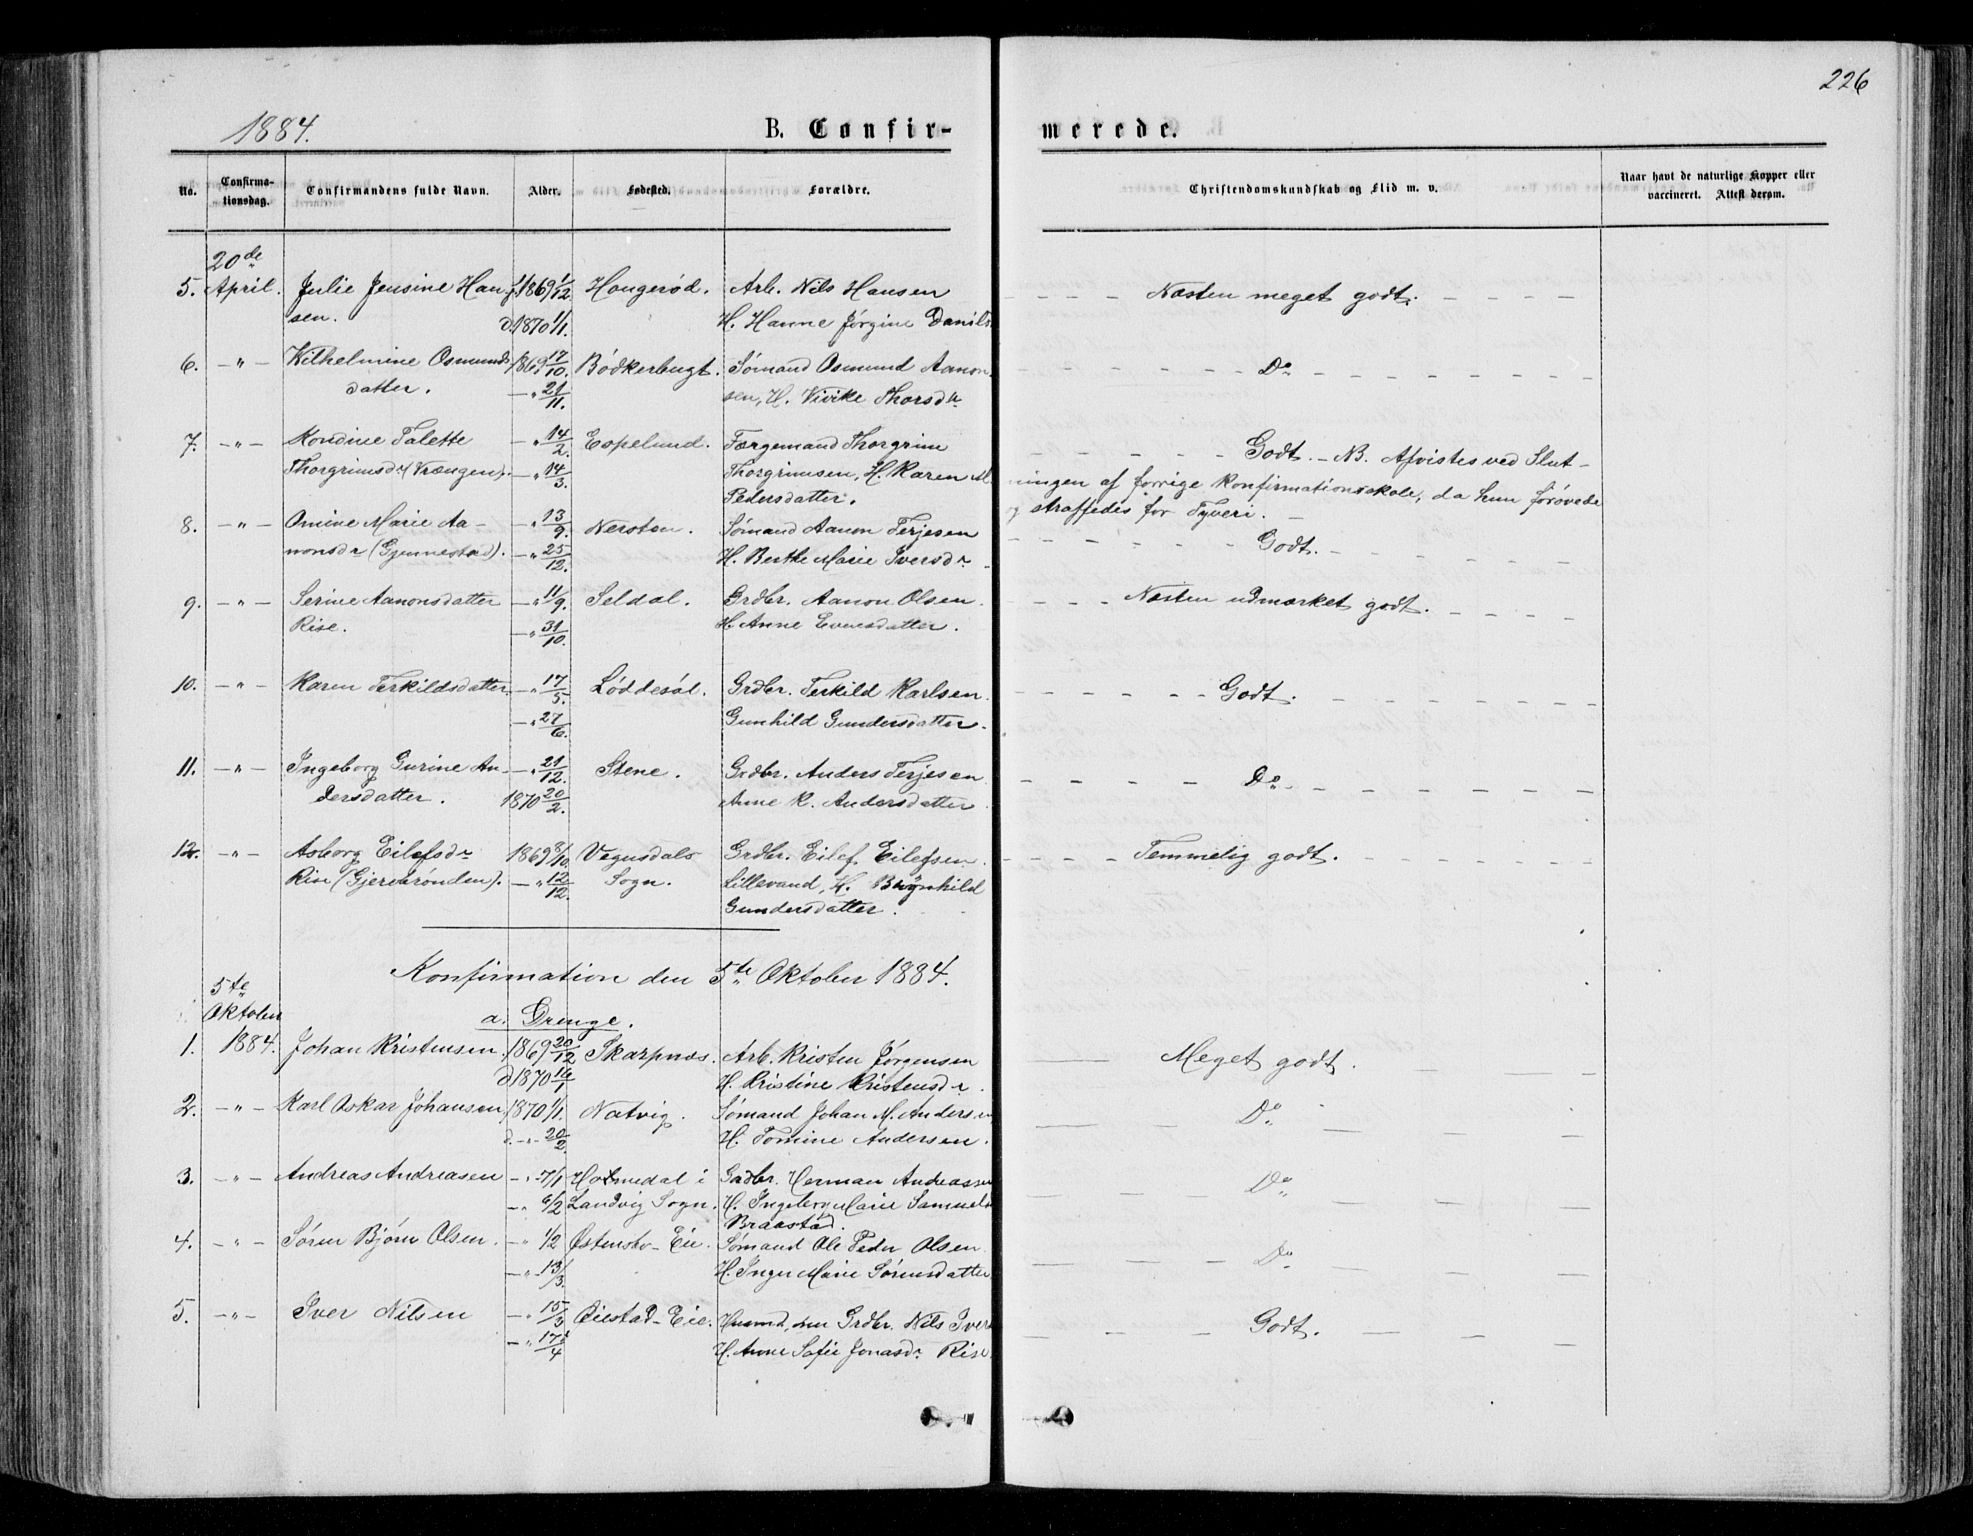 226
1884.
B. Confir-
merede.
No.
Confirma-
tionsdag.
Confirmandens fulde Navn.
Alder.
Fødested.
Forældre.
Christendomskundskab og Flid m. v.
Naar havt de naturlige Kopper eller
vaccineret. Attest derom.
20de
5. April. Julie Jensine Han- f. 1869 1/12 Haugerød. Arb. Nils Hansen Næsten meget godt.
sen. d. 1870 1/1. H. Hanne Jørgine Daniels
6. -"- Wilhelmine Osmunds 1869 17/10. Bødkerbugt. Sømand Osmund Aanon- Do
datter. -"- 21/11. sen, H. Vivike Thorsdr
7. -"- Kondine Talette -"- 14/2. Espelund. Færgemand Thorgrim Godt. - NB. Afvistes ved Slut-
Thorgrimsdr (Vrængen). -"- 14/3. Thorgrimsen, H. Karen M. ningen af forrige Konfirmationsskole, da hun forøvede
Pedersdatter. og straffedes for Tyveri.
8. -"- Omine Marie Aa- -"- 13/9. Nersten. Sømand Aanon Terjesen
nonsdr (Gjennestad). -"- 25/12. H. Berthe Marie Iversdr Godt.
9. -"- Serine Aanonsdatter -"- 11/9. Seldal. Grdbr. Aanon Olsen. Næsten udmærket godt.
Rise. -"- 31/10. H. Anne Evensdatter.
10. -"- Karen Terkildsdatter -"- 17/5. Løddesøl. Grdbr. Terkild Karlsen Godt.
-"- 27/6. Gunhild Gundersdatter.
11. -"- Ingeborg Gurine An- -"- 21/12. Stene. Grdbr. Anders Terjesen Do
dersdatter. 1870 20/2. Anne K. Andersdatter
12. -"- Asborg Eilefsdr 1869 8/10. Vegusdals Grdbr. Eilef Eilefsen. Temmelig godt.
Rise (Gjerebrønden). -"- 12/12. Sogn. Lillevand, H. Brynhild
Gundersdatter.
Konfirmation den 5te Oktober 1884.
5te
Oktober
a. Drenge.
1. 1884. Johan Kristensen. 1869 20/12 Skarpnæs. Arb. Kristen Jørgensen Meget godt.
d. 1870 16/1 H. Kristine Kristensdr.
2. -"- Karl Oskar Johansen 1870 1/1. Natvig. Sømand Johan M. Andersen Do
d. -"- 20/2. H. Tomine Andersen.
3. -"- Andreas Andreasen -"- 7/1 Holmedal i Gadbr. Herman Andreassen Do
-"- 6/2 Landvig Sogn. H. Ingeborg Marie Samuels
Braastad.
4. -"- Søren Bjørn Olsen. -"- 1/2 Østensbo-Eie. Sømand Ole Peder Olsen Do
-"- 13/3. H. Inger Marie Sørensdatter
5. -"- Iver Nilsen -"- 15/3 Øiestad-Eie. Husmd, nu Grdbr. Nils Ivers Godt.
-"- 17/4 H. Anne Sofie Jonasdr Rise.